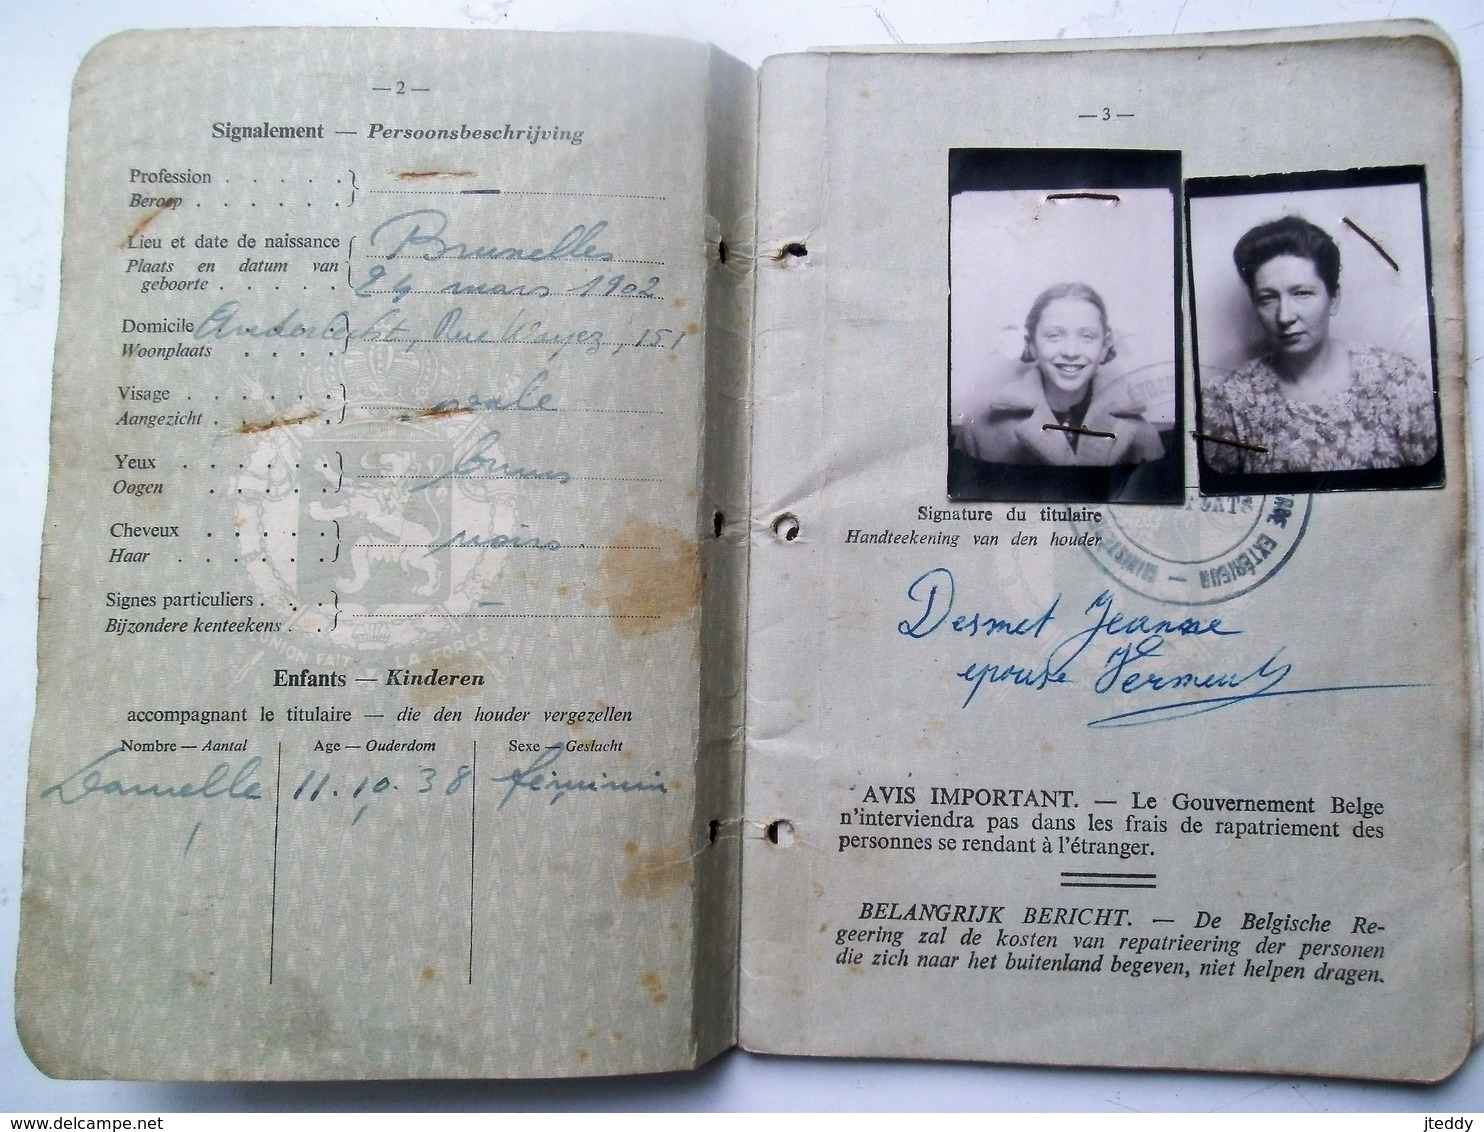 — 2 —
Signalement — Persoonsbeschrijving
Profession . . . . .
Beroep . . . . . . —
Lieu et date de naissance Bruxelles
Plaats en datum van
geboorte . . . . . 24 mars 1902
Domicile Anderlecht, Rue Wayez, 151
Woonplaats . . . .
Visage . . . . . . ovale
Aangezicht . . . . .
Yeux . . . . . . bruns
Oogen . . . . .
Cheveux . . . . . noirs
Haar . . . . . .
Signes particuliers . . . —
Bijzondere kenteekens . .
L'UNION FAIT LA FORCE
Enfants — Kinderen
accompagnant le titulaire — die den houder vergezellen
Nombre — Aantal Age — Ouderdom Sexe — Geslacht
Danielle 11.10.38 féminin
1
— 3 —
Signature du titulaire
Handteekening van den houder
EXTÉRIEUR — MINISTÈRE
Desmet Jeanne
epouse
AVIS IMPORTANT. — Le Gouvernement Belge
n'interviendra pas dans les frais de rapatriement des
personnes se rendant à l'étranger.
BELANGRIJK BERICHT. — De Belgische Re-
geering zal de kosten van repatrieering der personen
die zich naar het buitenland begeven, niet helpen dragen.
www.delcampe.net
jteddy